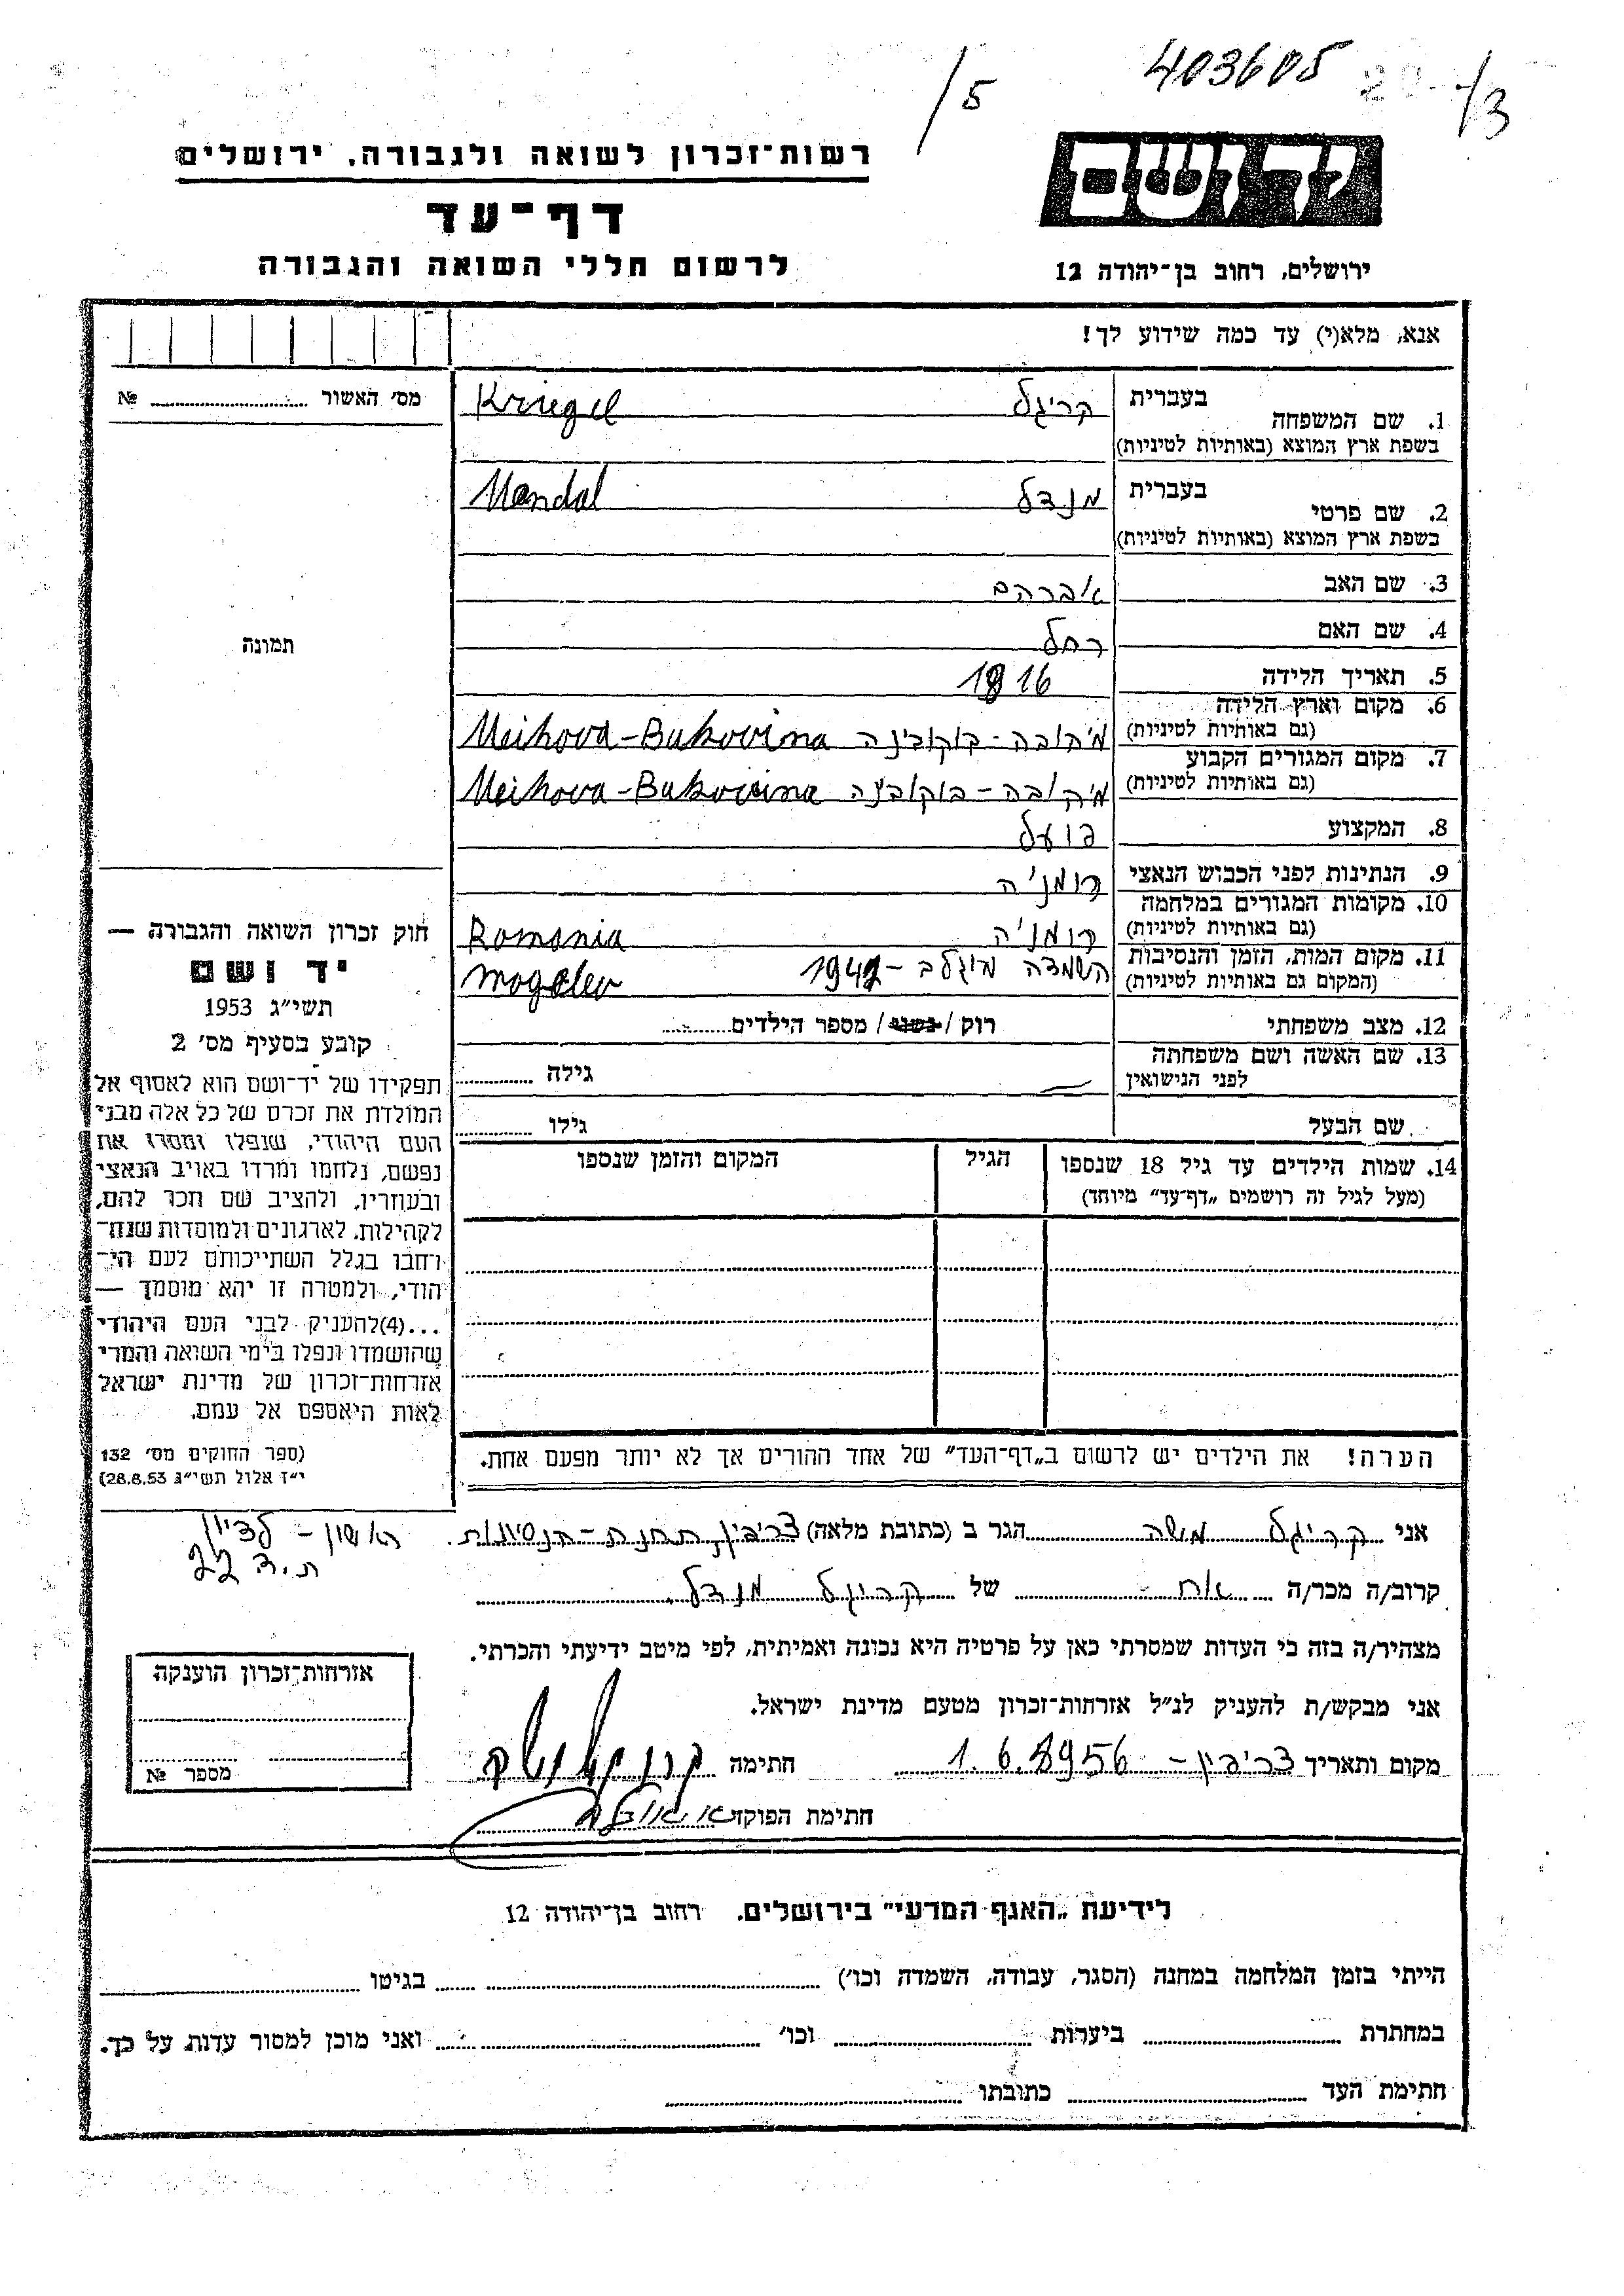 403605
/5
/3
יד ושם
ירושלים, רחוב בן־יהודה 12
רשות־זכרון לשואה ולגבורה, ירושלים
דף־עד
לרשום חללי השואה והגבורה
אנא, מלא(י) עד כמה שידוע לך!
מס׳ האשור № 
1. שם המשפחה בעברית קריגל Kriegel
בשפת ארץ המוצא (באותיות לטיניות)
2. שם פרטי בעברית מנדל Mendel
בשפת ארץ המוצא (באותיות לטיניות)
3. שם האב אברהם
4. שם האם רחל
5. תאריך הלידה 1916
6. מקום וארץ הלידה
(גם באותיות לטיניות) מיהובה - בוקובינה Meihova-Bukovina
7. מקום המגורים הקבוע
(גם באותיות לטיניות) מיהובה - בוקובינה Meihova-Bukovina
8. המקצוע פועל
9. הנתינות לפני הכבוש הנאצי רומניה
10. מקומות המגורים במלחמה
(גם באותיות לטיניות) רומניה Romania
11. מקום המות, הזמן והנסיבות השמדה מוגלב - 1942
(המקום גם באותיות לטיניות) Mogelev
12. מצב משפחתי רוק / נשוי / מספר הילדים
13. שם האשה ושם משפחתה
לפני הנישואין גילה
שם הבעל גילו
14. שמות הילדים עד גיל 18 שנספו הגיל המקום והזמן שנספו
(מעל לגיל זה רושמים „דף־עד״ מיוחד)
הערה! את הילדים יש לרשום ב„דף־העד״ של אחד ההורים אך לא יותר מפעם אחת.
תמונה
חוק זכרון השואה והגבורה —
יד ושם
תשי״ג 1953
קובע בסעיף מס׳ 2
תפקידו של יד־ושם הוא לאסוף אל
המולדת את זכרם של כל אלה מבני
העם היהודי, שנפלו ומסרו את
נפשם, נלחמו ומרדו באויב הנאצי
ובעוזריו, ולהציב שם וזכר להם,
לקהילות, לארגונים ולמוסדות שנח־
רחבו בגלל השתייכותם לעם הי־
הודי, ולמטרה זו יהא מוסמך —
...(4)להעניק לבני העם היהודי
שהושמדו ונפלו בימי השואה והמרי
אזרחות־זכרון של מדינת ישראל
לאות היאספם אל עמם.
(ספר החוקים מס׳ 132
י״ז אלול תשי״ג 28.8.53)
אני קריגל משה הגר ב (כתובת מלאה) צריפין תחנת - הנסיונות. ראשון - לציון
ת.ד 22
קרוב/ה מכר/ה אח של קריגל מנדל
מצהיר/ה בזה כי העדות שמסרתי כאן על פרטיה היא נכונה ואמיתית, לפי מיטב ידיעתי והכרתי.
אני מבקש/ת להעניק לנ״ל אזרחות־זכרון מטעם מדינת ישראל.
מקום ותאריך צריפין - 1.6.1956 חתימה קריגל משה
חתימת הפוקד
אזרחות־זכרון הוענקה
מספר №
לידיעת „האגף המדעי״ בירושלים, רחוב בן־יהודה 12
הייתי בזמן המלחמה במחנה (הסגר, עבודה, השמדה וכו׳) בגיטו
במחתרת ביערות וכו׳ ואני מוכן למסור עדות על כך.
חתימת העד כתובתו